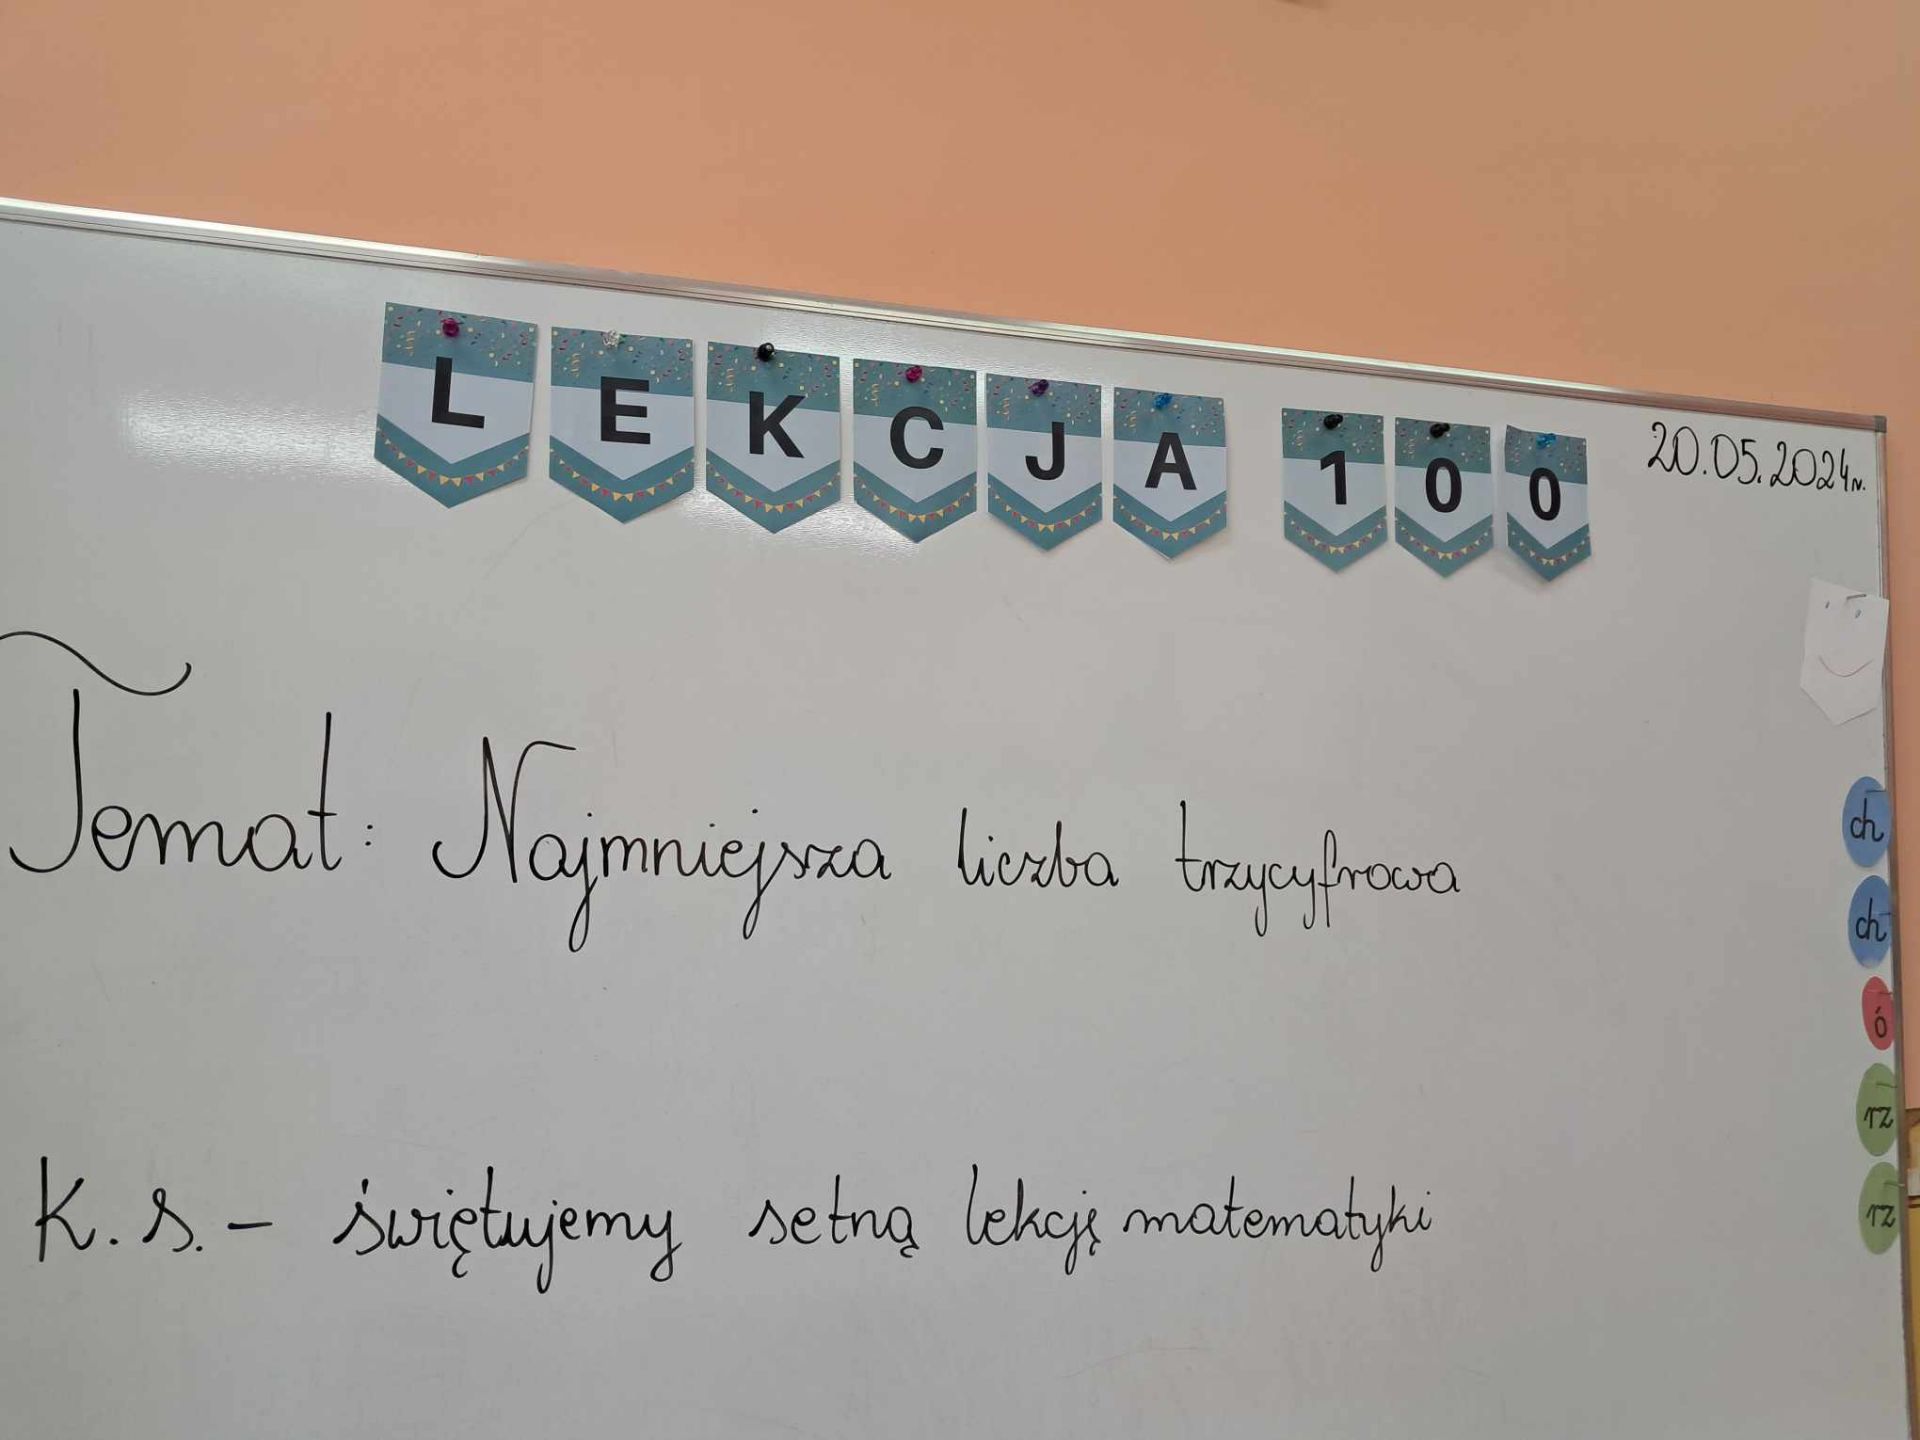 LEKCJA 100
20.05.2024r.
Temat: Najmniejsza liczba trzycyfrowa
K. s. - świętujemy setną lekcję matematyki
ch
ch
ó
rz
rz